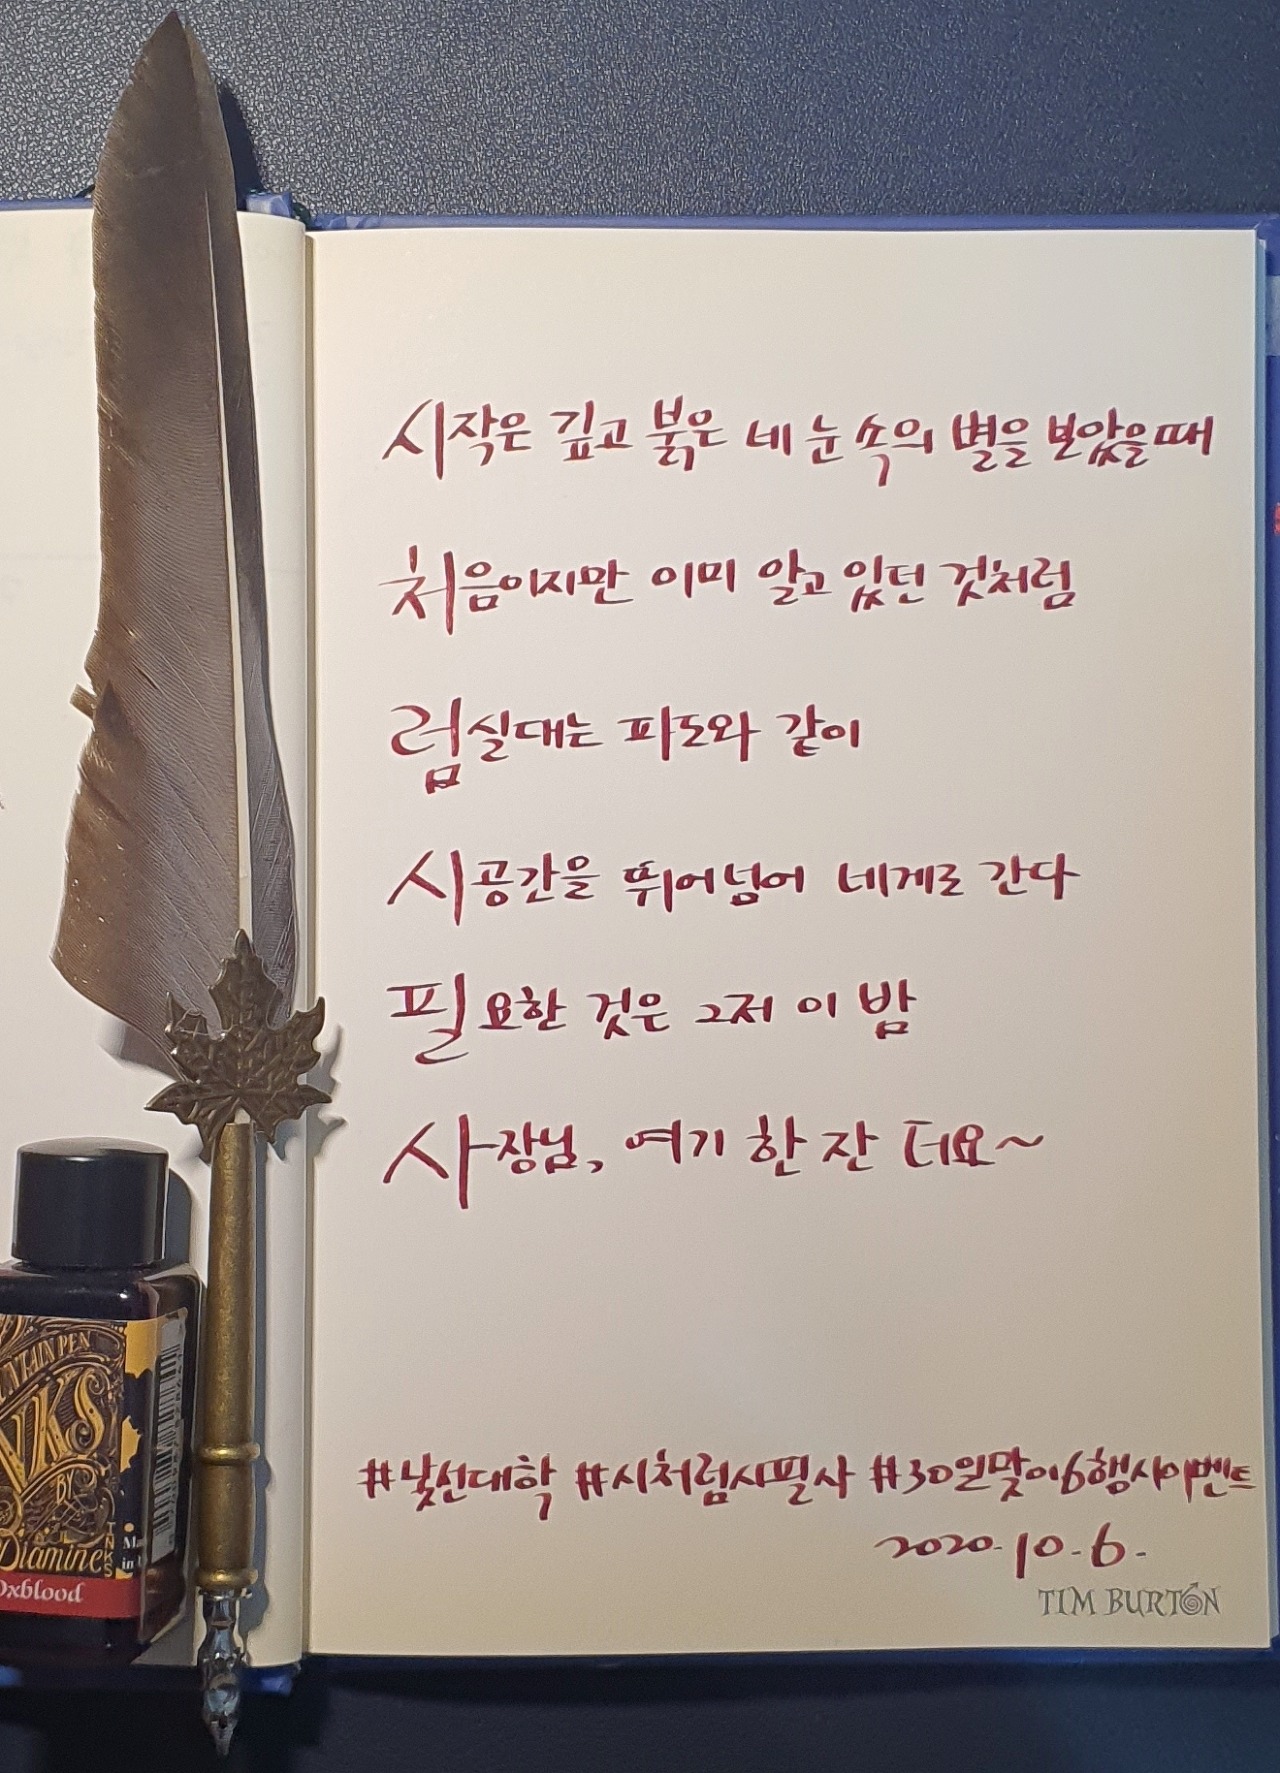 시작은 깊고 붉은 네 눈 속의 별을 보았을 때
처음이지만 이미 알고 있던 것처럼
럼실대는 파도와 같이
시공간을 뛰어넘어 네게로 간다
필요한 것은 그저 이 밤
사장님, 여기 한 잔 더요~
#낯선대학 #시처럼시필사 #30일맞이6행시이벤트
2020.10.6.
TIM BURTON
FOUNTAIN PEN
INKS
BY
Diamine
INKS
Made
in
Oxblood